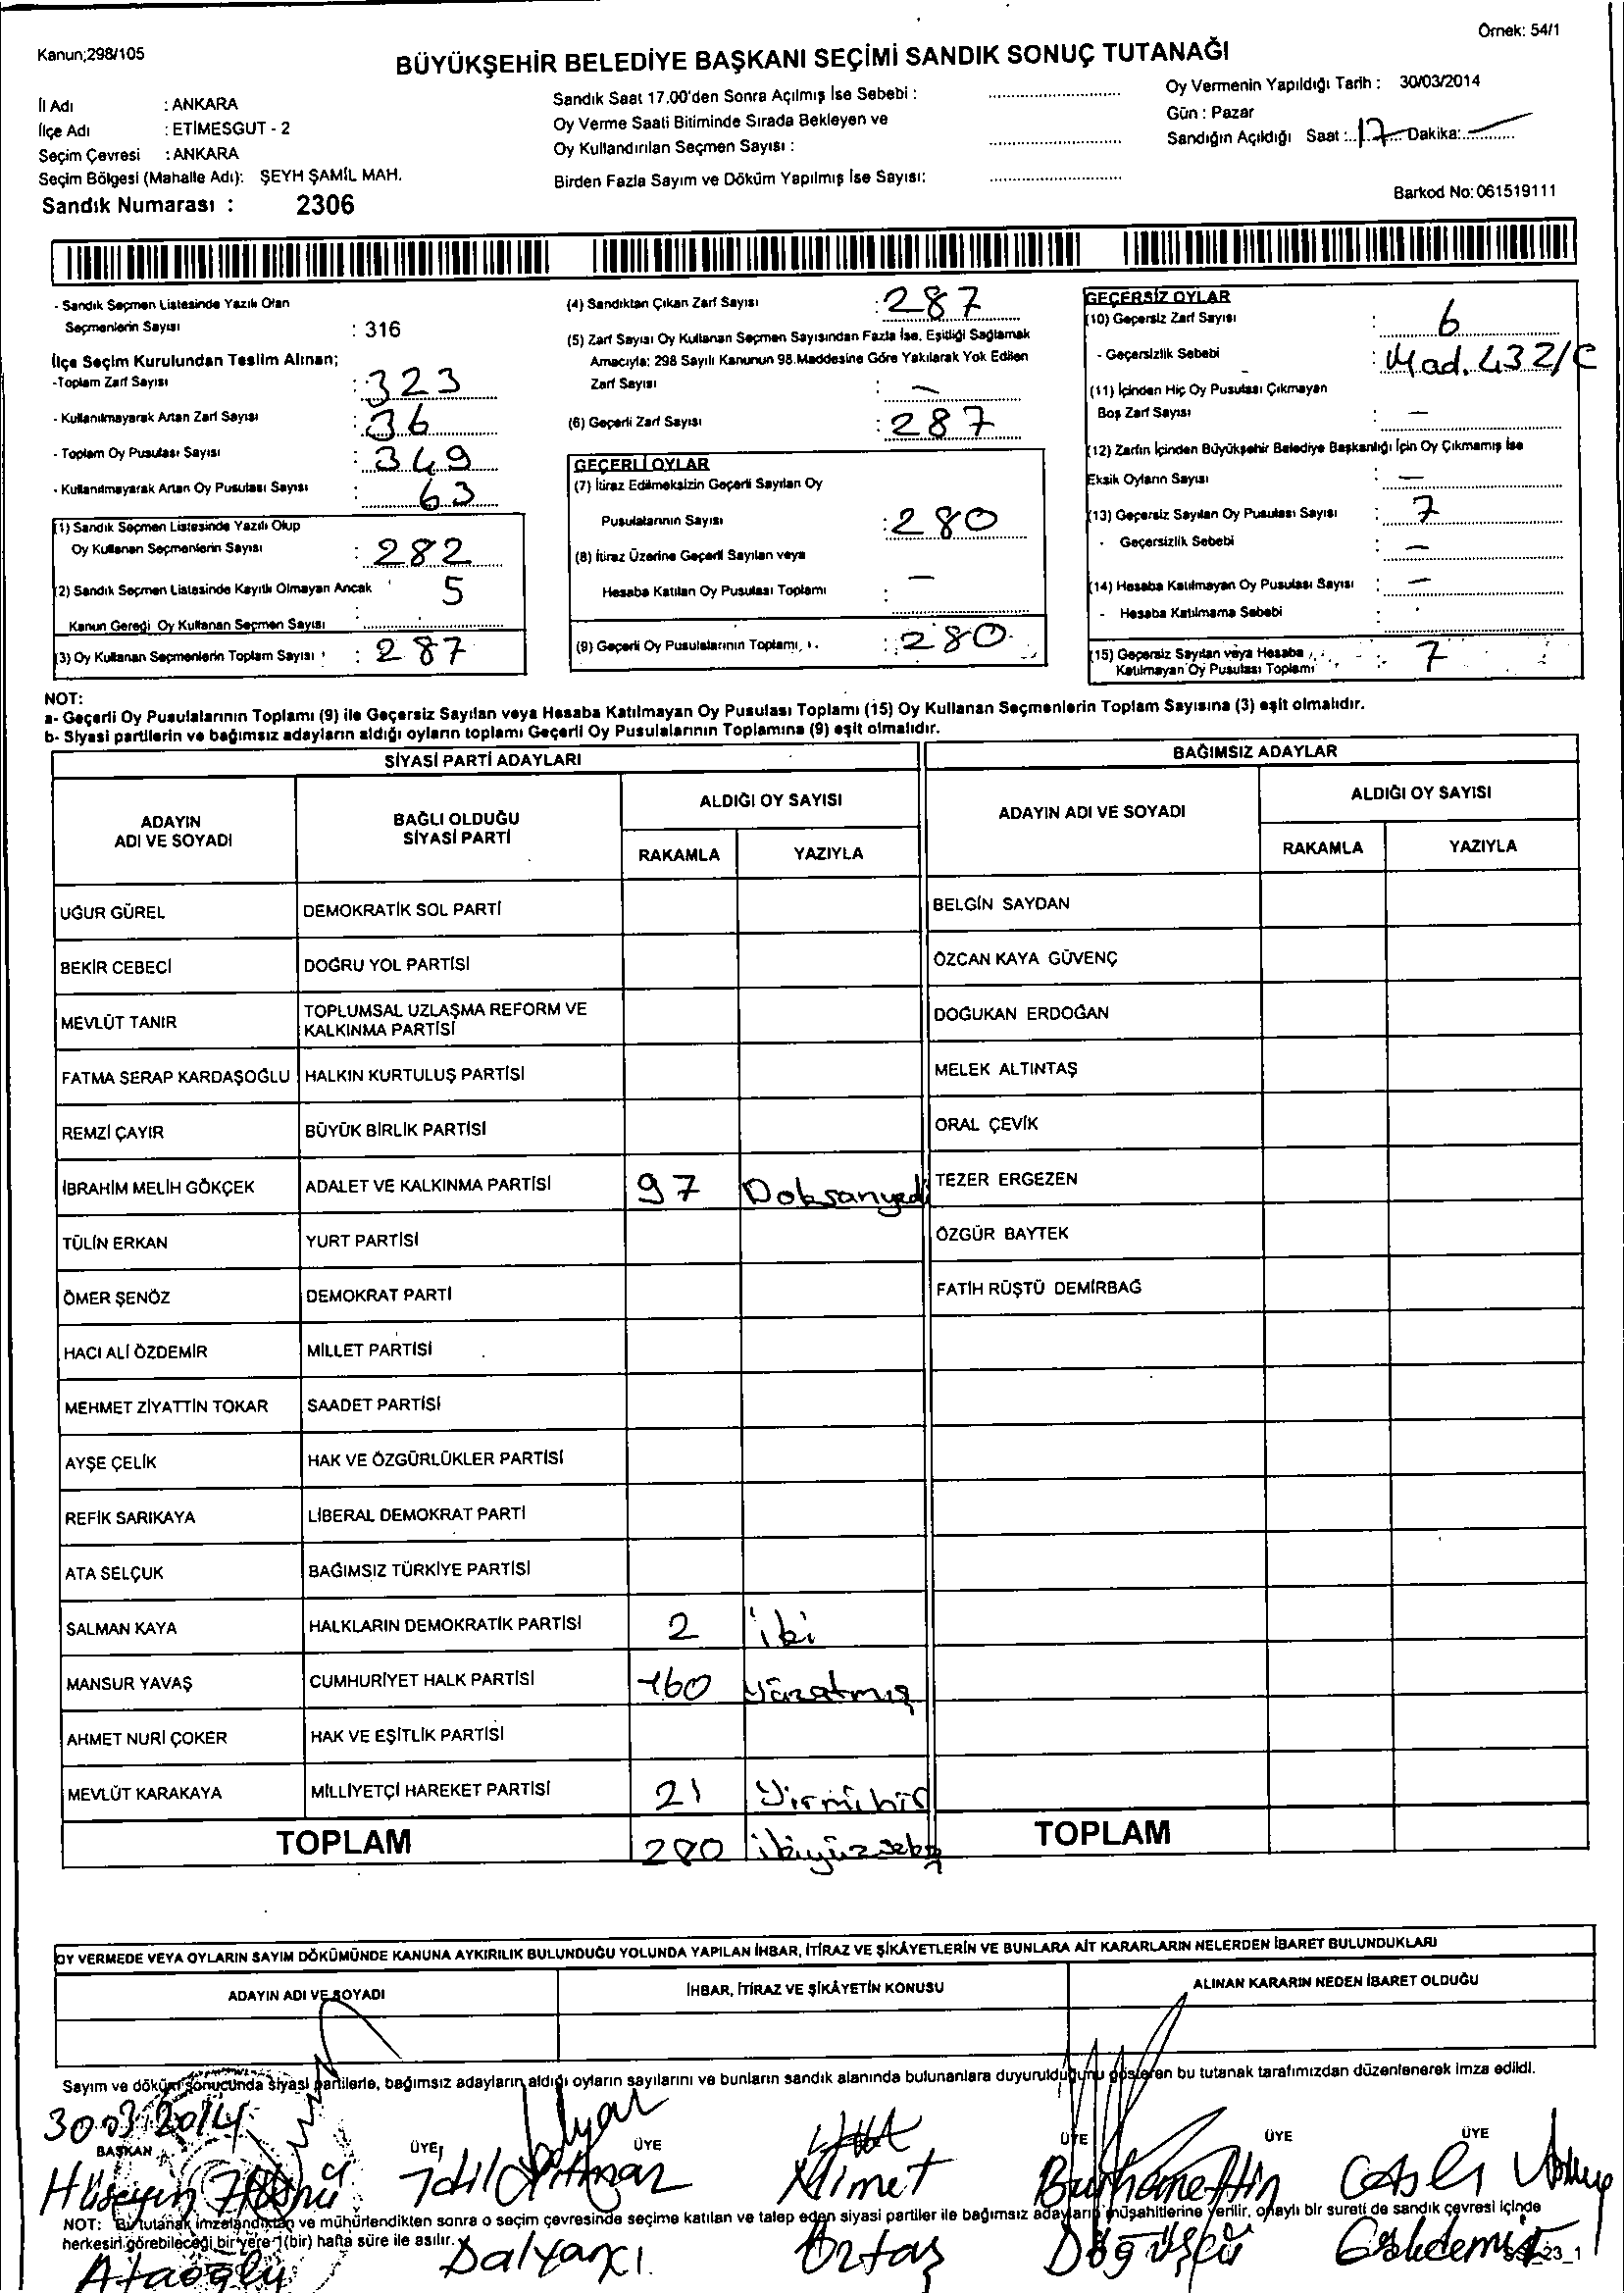 Kanun;298/105
Örnek: 54/1
BÜYÜKŞEHİR BELEDİYE BAŞKANI SEÇİMİ SANDIK SONUÇ TUTANAĞI
İl Adı : ANKARA
İlçe Adı : ETİMESGUT - 2
Seçim Çevresi : ANKARA
Seçim Bölgesi (Mahalle Adı): ŞEYH ŞAMİL MAH.
Sandık Numarası : 2306
Sandık Saat 17.00'den Sonra Açılmış İse Sebebi :
Oy Verme Saati Bitiminde Sırada Bekleyen ve
Oy Kullandırılan Seçmen Sayısı :
Birden Fazla Sayım ve Döküm Yapılmış İse Sayısı:
Oy Vermenin Yapıldığı Tarih : 30/03/2014
Gün : Pazar
Sandığın Açıldığı Saat : 17 Dakika: —
Barkod No: 061519111
- Sandık Seçmen Listesinde Yazılı Olan
Seçmenlerin Sayısı : 316
İlçe Seçim Kurulundan Teslim Alınan;
-Toplam Zarf Sayısı : 323
- Kullanılmayarak Artan Zarf Sayısı : 36
- Toplam Oy Pusulası Sayısı : 349
- Kullanılmayarak Artan Oy Pusulası Sayısı : 63
(1) Sandık Seçmen Listesinde Yazılı Olup
Oy Kullanan Seçmenlerin Sayısı : 282
(2) Sandık Seçmen Listesinde Kayıtlı Olmayan Ancak
Kanun Gereği Oy Kullanan Seçmen Sayısı : 5
(3) Oy Kullanan Seçmenlerin Toplam Sayısı : 287
(4) Sandıktan Çıkan Zarf Sayısı : 287
(5) Zarf Sayısı Oy Kullanan Seçmen Sayısından Fazla İse, Eşitliği Sağlamak
Amacıyla; 298 Sayılı Kanunun 98.Maddesine Göre Yakılarak Yok Edilen
Zarf Sayısı : —
(6) Geçerli Zarf Sayısı : 287
GEÇERLİ OYLAR
(7) İtiraz Edilmeksizin Geçerli Sayılan Oy
Pusulalarının Sayısı : 280
(8) İtiraz Üzerine Geçerli Sayılan veya
Hesaba Katılan Oy Pusulası Toplamı : —
(9) Geçerli Oy Pusulalarının Toplamı : 280
GEÇERSİZ OYLAR
(10) Geçersiz Zarf Sayısı : 6
- Geçersizlik Sebebi : Mad. 432/C
(11) İçinden Hiç Oy Pusulası Çıkmayan
Boş Zarf Sayısı : —
(12) Zarfın İçinden Büyükşehir Belediye Başkanlığı İçin Oy Çıkmamış İse
Eksik Oyların Sayısı : —
(13) Geçersiz Sayılan Oy Pusulası Sayısı : 7
- Geçersizlik Sebebi : —
(14) Hesaba Katılmayan Oy Pusulası Sayısı : —
- Hesaba Katılmama Sebebi :
(15) Geçersiz Sayılan veya Hesaba
Katılmayan Oy Pusulası Toplamı : 7
NOT:
a- Geçerli Oy Pusulalarının Toplamı (9) ile Geçersiz Sayılan veya Hesaba Katılmayan Oy Pusulası Toplamı (15) Oy Kullanan Seçmenlerin Toplam Sayısına (3) eşit olmalıdır.
b- Siyasi partilerin ve bağımsız adayların aldığı oyların toplamı Geçerli Oy Pusulalarının Toplamına (9) eşit olmalıdır.
SİYASİ PARTİ ADAYLARI
ADAYIN ADI VE SOYADI
BAĞLI OLDUĞU SİYASİ PARTİ
ALDIĞI OY SAYISI
RAKAMLA YAZIYLA
UĞUR GÜREL DEMOKRATİK SOL PARTİ
BEKİR CEBECİ DOĞRU YOL PARTİSİ
MEVLÜT TANIR TOPLUMSAL UZLAŞMA REFORM VE KALKINMA PARTİSİ
FATMA SERAP KARDAŞOĞLU HALKIN KURTULUŞ PARTİSİ
REMZİ ÇAYIR BÜYÜK BİRLİK PARTİSİ
İBRAHİM MELİH GÖKÇEK ADALET VE KALKINMA PARTİSİ 97 Doksanyedi
TÜLİN ERKAN YURT PARTİSİ
ÖMER ŞENÖZ DEMOKRAT PARTİ
HACI ALİ ÖZDEMİR MİLLET PARTİSİ
MEHMET ZİYATTİN TOKAR SAADET PARTİSİ
AYŞE ÇELİK HAK VE ÖZGÜRLÜKLER PARTİSİ
REFİK SARIKAYA LİBERAL DEMOKRAT PARTİ
ATA SELÇUK BAĞIMSIZ TÜRKİYE PARTİSİ
SALMAN KAYA HALKLARIN DEMOKRATİK PARTİSİ 2 iki
MANSUR YAVAŞ CUMHURİYET HALK PARTİSİ 160 Yüzatmış
AHMET NURİ ÇOKER HAK VE EŞİTLİK PARTİSİ
MEVLÜT KARAKAYA MİLLİYETÇİ HAREKET PARTİSİ 21 Yirmibir
TOPLAM 280 ikiyüzseks
BAĞIMSIZ ADAYLAR
ADAYIN ADI VE SOYADI
ALDIĞI OY SAYISI
RAKAMLA YAZIYLA
BELGİN SAYDAN
ÖZCAN KAYA GÜVENÇ
DOĞUKAN ERDOĞAN
MELEK ALTINTAŞ
ORAL ÇEVİK
TEZER ERGEZEN
ÖZGÜR BAYTEK
FATİH RÜŞTÜ DEMİRBAĞ
TOPLAM
OY VERMEDE VEYA OYLARIN SAYIM DÖKÜMÜNDE KANUNA AYKIRILIK BULUNDUĞU YOLUNDA YAPILAN İHBAR, İTİRAZ VE ŞİKÂYETLERİN VE BUNLARA AİT KARARLARIN NELERDEN İBARET BULUNDUKLARI
ADAYIN ADI VE SOYADI
İHBAR, İTİRAZ VE ŞİKÂYETİN KONUSU
ALINAN KARARIN NEDEN İBARET OLDUĞU
Sayım ve döküm sonucunda siyasi partilerle, bağımsız adayların aldığı oyların sayılarını ve bunların sandık alanında bulunanlara duyurulduğunu gösteren bu tutanak tarafımızdan düzenlenerek imza edildi.
30.03.2014
BAŞKAN ÜYE ÜYE ÜYE ÜYE ÜYE
Hüseyin Hüsnü
Nimet Burhanettin
NOT: Bu tutanak imzalandıktan ve mühürlendikten sonra o seçim çevresinde seçime katılan ve talep eden siyasi partiler ile bağımsız adayların müşahitlerine verilir. onaylı bir sureti de sandık çevresi içinde
herkesin görebileceği bir yere 1(bir) hafta süre ile asılır.
Ataoğlu Dalyancı Öztaş